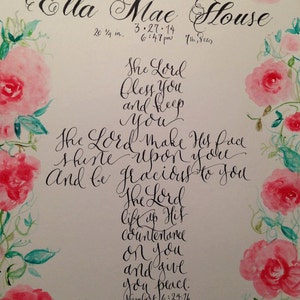 Ella Mae House
3·27·14
20 ¼ in. 6:47pm 7lb, 8ozs
The Lord
bless you
and keep
you
The Lord make His face
shine upon you
And be gracious to you
The Lord
lift up His
countenance
on you
and give
you peace
Numbers 6:24-26